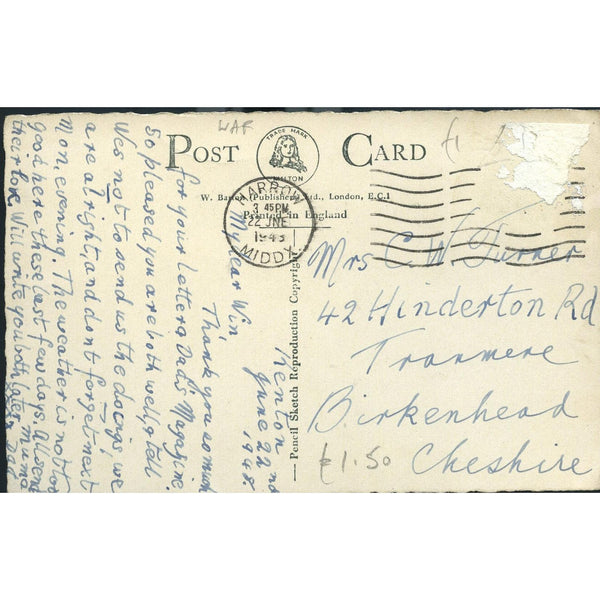 WAF
POST CARD
TRADE MARK
MILTON
W. Barton (Publishers) Ltd., London, E.C.1
Printed in England
HARROW
3 45 PM
22 JNE
1948
MIDDX.
Pencil Sketch Reproduction Copyright
Mrs C. W Turner
42 Hinderton Rd
Tranmere
Birkenhead
Cheshire
£1.50
Kenton
June 22nd
1948.
My Dear Win
Thank you so much
for your letter & Dads Magazine.
So pleased you are both well, tell
Wes not to send us the docings we
are alright, and dont forget next
Mon, evening. The weather is not too
good here these last few days. All send
their love. Will write you both later